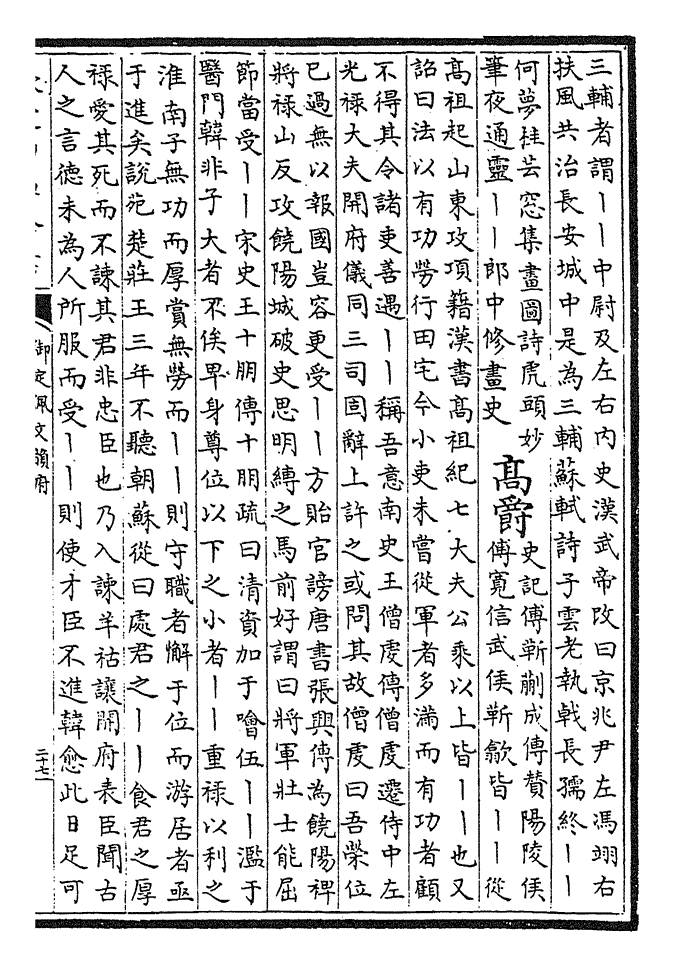 三輔者謂丨丨中尉及左右內史漢武帝改曰京兆尹左馮翊右
扶風共治長安城中是為三輔蘇軾詩子雲老執戟長孺終丨丨
何夢桂芸窓集畫圖詩虎頭妙
筆夜通靈丨丨郎中修畫史
高爵
史記傅靳蒯成傳賛陽陵侯
傅寛信武侯靳歙皆丨丨從
高祖起山東攻項籍漢書高祖紀七大夫公乘以上皆丨丨也又
詔曰法以有功勞行田宅今小吏未嘗從軍者多滿而有功者顧
不得其令諸吏善遇丨丨稱吾意南史王僧虔傳僧虔遷侍中左
光祿大夫開府儀同三司固辭上許之或問其故僧虔曰吾榮位
已過無以報國豈容更受丨丨方貽官謗唐書張興傳為饒陽裨
將祿山反攻饒陽城破史思明縛之馬前好謂曰將軍壯士能屈
節當受丨丨宋史王十朋傳十朋疏曰清資加于噲伍丨丨濫于
醫門韓非子大者不俟卑身尊位以下之小者丨丨重祿以利之
淮南子無功而厚賞無勞而丨丨則守職者懈于位而游居者亟
于進矣說苑楚莊王三年不聽朝蘇從曰處君之丨丨食君之厚
祿愛其死而不諫其君非忠臣也乃入諫羊祜讓開府表臣聞古
人之言德未為人所服而受丨丨則使才臣不進韓愈此日足可
御定佩文韻府
二十七